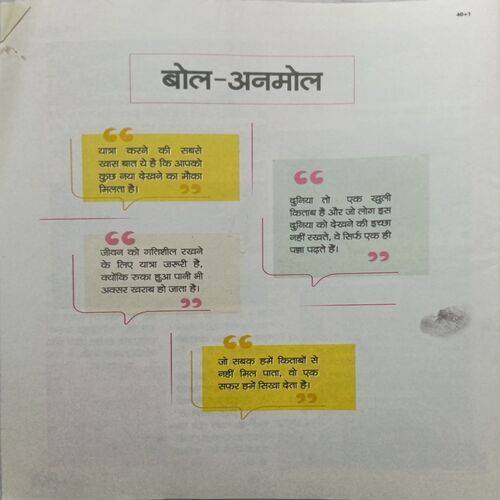 40+1
बोल-अनमोल
यात्रा करने की सबसे
खास बात ये है कि आपको
कुछ नया देखने का मौका
मिलता है।
दुनिया तो एक खुली
किताब है और जो लोग इस
दुनिया को देखने की इच्छा
नहीं रखते, वे सिर्फ एक ही
पन्ना पढ़ते हैं।
जीवन को गतिशील रखने
के लिए यात्रा जरूरी है,
क्योंकि रुका हुआ पानी भी
अक्सर खराब हो जाता है।
जो सबक हमें किताबों से
नहीं मिल पाता, वो एक
सफर हमें सिखा देता है।